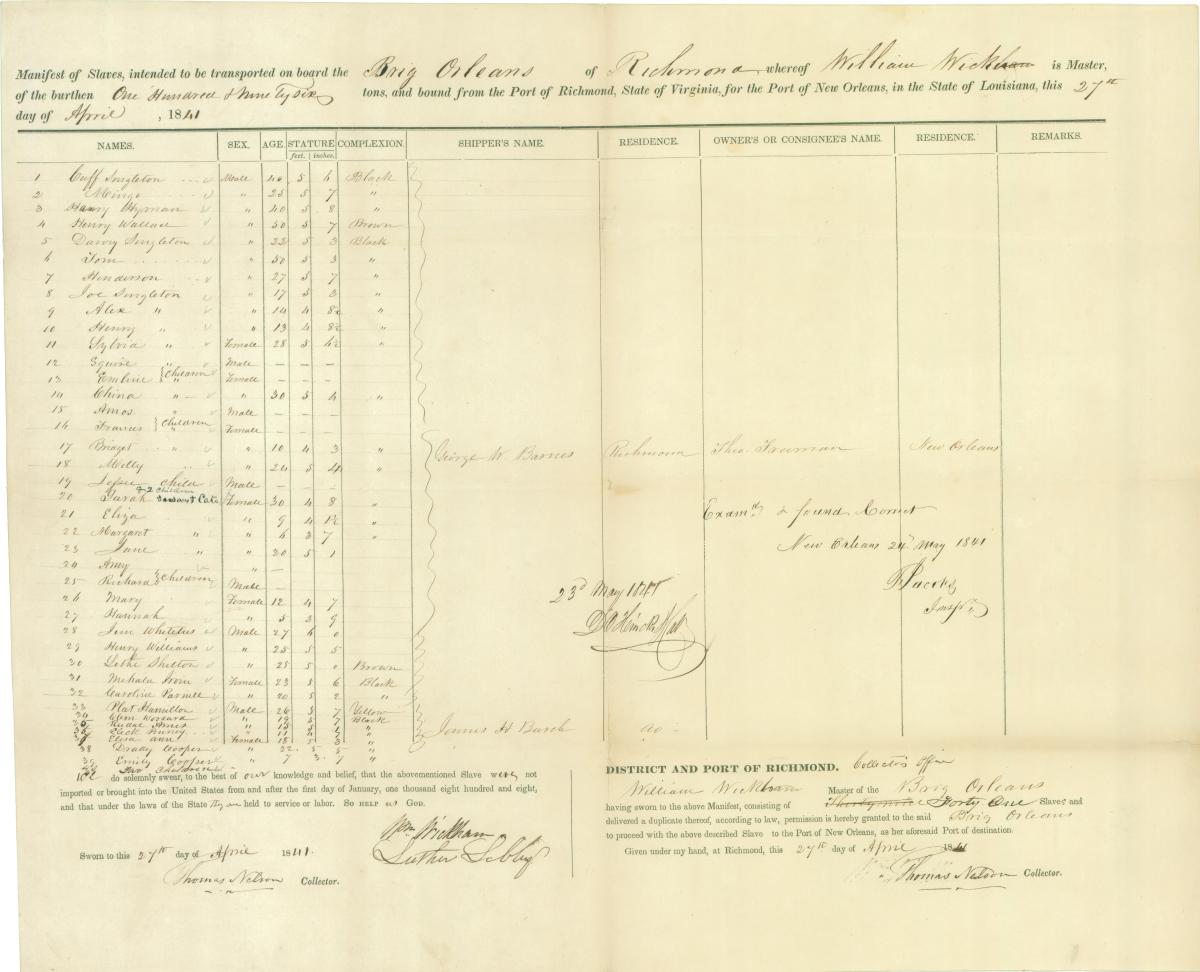 Manifest of Slaves, intended to be transported on board the Brig Orleans of Richmond whereof William Wickham is Master,
of the burthen One Hundred & Ninety six tons, and bound from the Port of Richmond, State of Virginia, for the Port of New Orleans, in the State of Louisiana, this 27th
day of April , 1841
NAMES. SEX. AGE STATURE COMPLEXION. SHIPPER'S NAME. RESIDENCE. OWNER'S OR CONSIGNEE'S NAME. RESIDENCE. REMARKS.
feet. inches.
1 Cuff Singleton Male 40 5 6 Black
2 Mingo " 25 5 7 "
3 Harry Hyman " 40 5 8 "
4 Henry Wallace " 50 5 7 Brown
5 Davy Singleton " 22 5 3 Black
6 Tom " 50 5 3 "
7 Henderson " 27 5 7 "
8 Joe Singleton " 17 5 3 "
9 Alex " " 14 4 8½ "
10 Henry " " 13 4 8½ "
11 Sylvia " Female 28 5 4½ "
12 Squire " Male — — —
13 Emline " Children Female — — —
14 China " " 30 5 4 "
15 Amos " Male — — —
16 Frances " Children Female — — —
17 Bridget " " 10 4 3 " George W. Barnes Richmond Theo. Freeman New Orleans
18 Milly " " 24 5 4 "
19 child Male — —
& 2 Children
20 Sarah Female 30 4 8 "
21 Eliza " 9 4 1½ "
Examd & found Correct
22 Margaret " " 6 3 7 "
23 Jane " " 30 5 1
New Orleans 24th May 1841
24 Amy " —
25 Richard Children Male —
P Jacobs
Inspr
26 Mary Female 12 4 7
23d May 1841
27 Hannah " 5 3 9
28 Jim Male 27 6 0
29 Henry Williams " 25 5 5
30 Shelton " 25 5 0 Brown
31 Female 23 5 6 Black
32 Caroline Parnell " 20 5 2 "
33 Plat Hamilton Male 26 5 7 Yellow
34 " 19 5 7 Black
35 " 15 5 1 "
James H Burch do -
36 " 11 4 7 "
37 Eliza Ann Female 18 5 3 "
38 Drady Cooper " 22 5 5 "
39 Emily Cooper " 7 3 7 "
Two Children
We do solemnly swear, to the best of our knowledge and belief, that the abovementioned Slave were not
imported or brought into the United States from and after the first day of January, one thousand eight hundred and eight,
and that under the laws of the State they are held to service or labor. So HELP us GOD.
Wm Wickham
Luther Libby
Sworn to this 27th day of April 1841.
Thomas Nelson Collector.
DISTRICT AND PORT OF RICHMOND. Collector's Office
William Wickham Master of the Brig Orleans
having sworn to the above Manifest, consisting of Thirty nine Forty One Slaves and
delivered a duplicate thereof, according to law, permission is hereby granted to the said Brig Orleans
to proceed with the above described Slave to the Port of New Orleans, as her aforesaid Port of destination.
Given under my hand, at Richmond, this 27th day of April 1841
Thomas Nelson Collector.